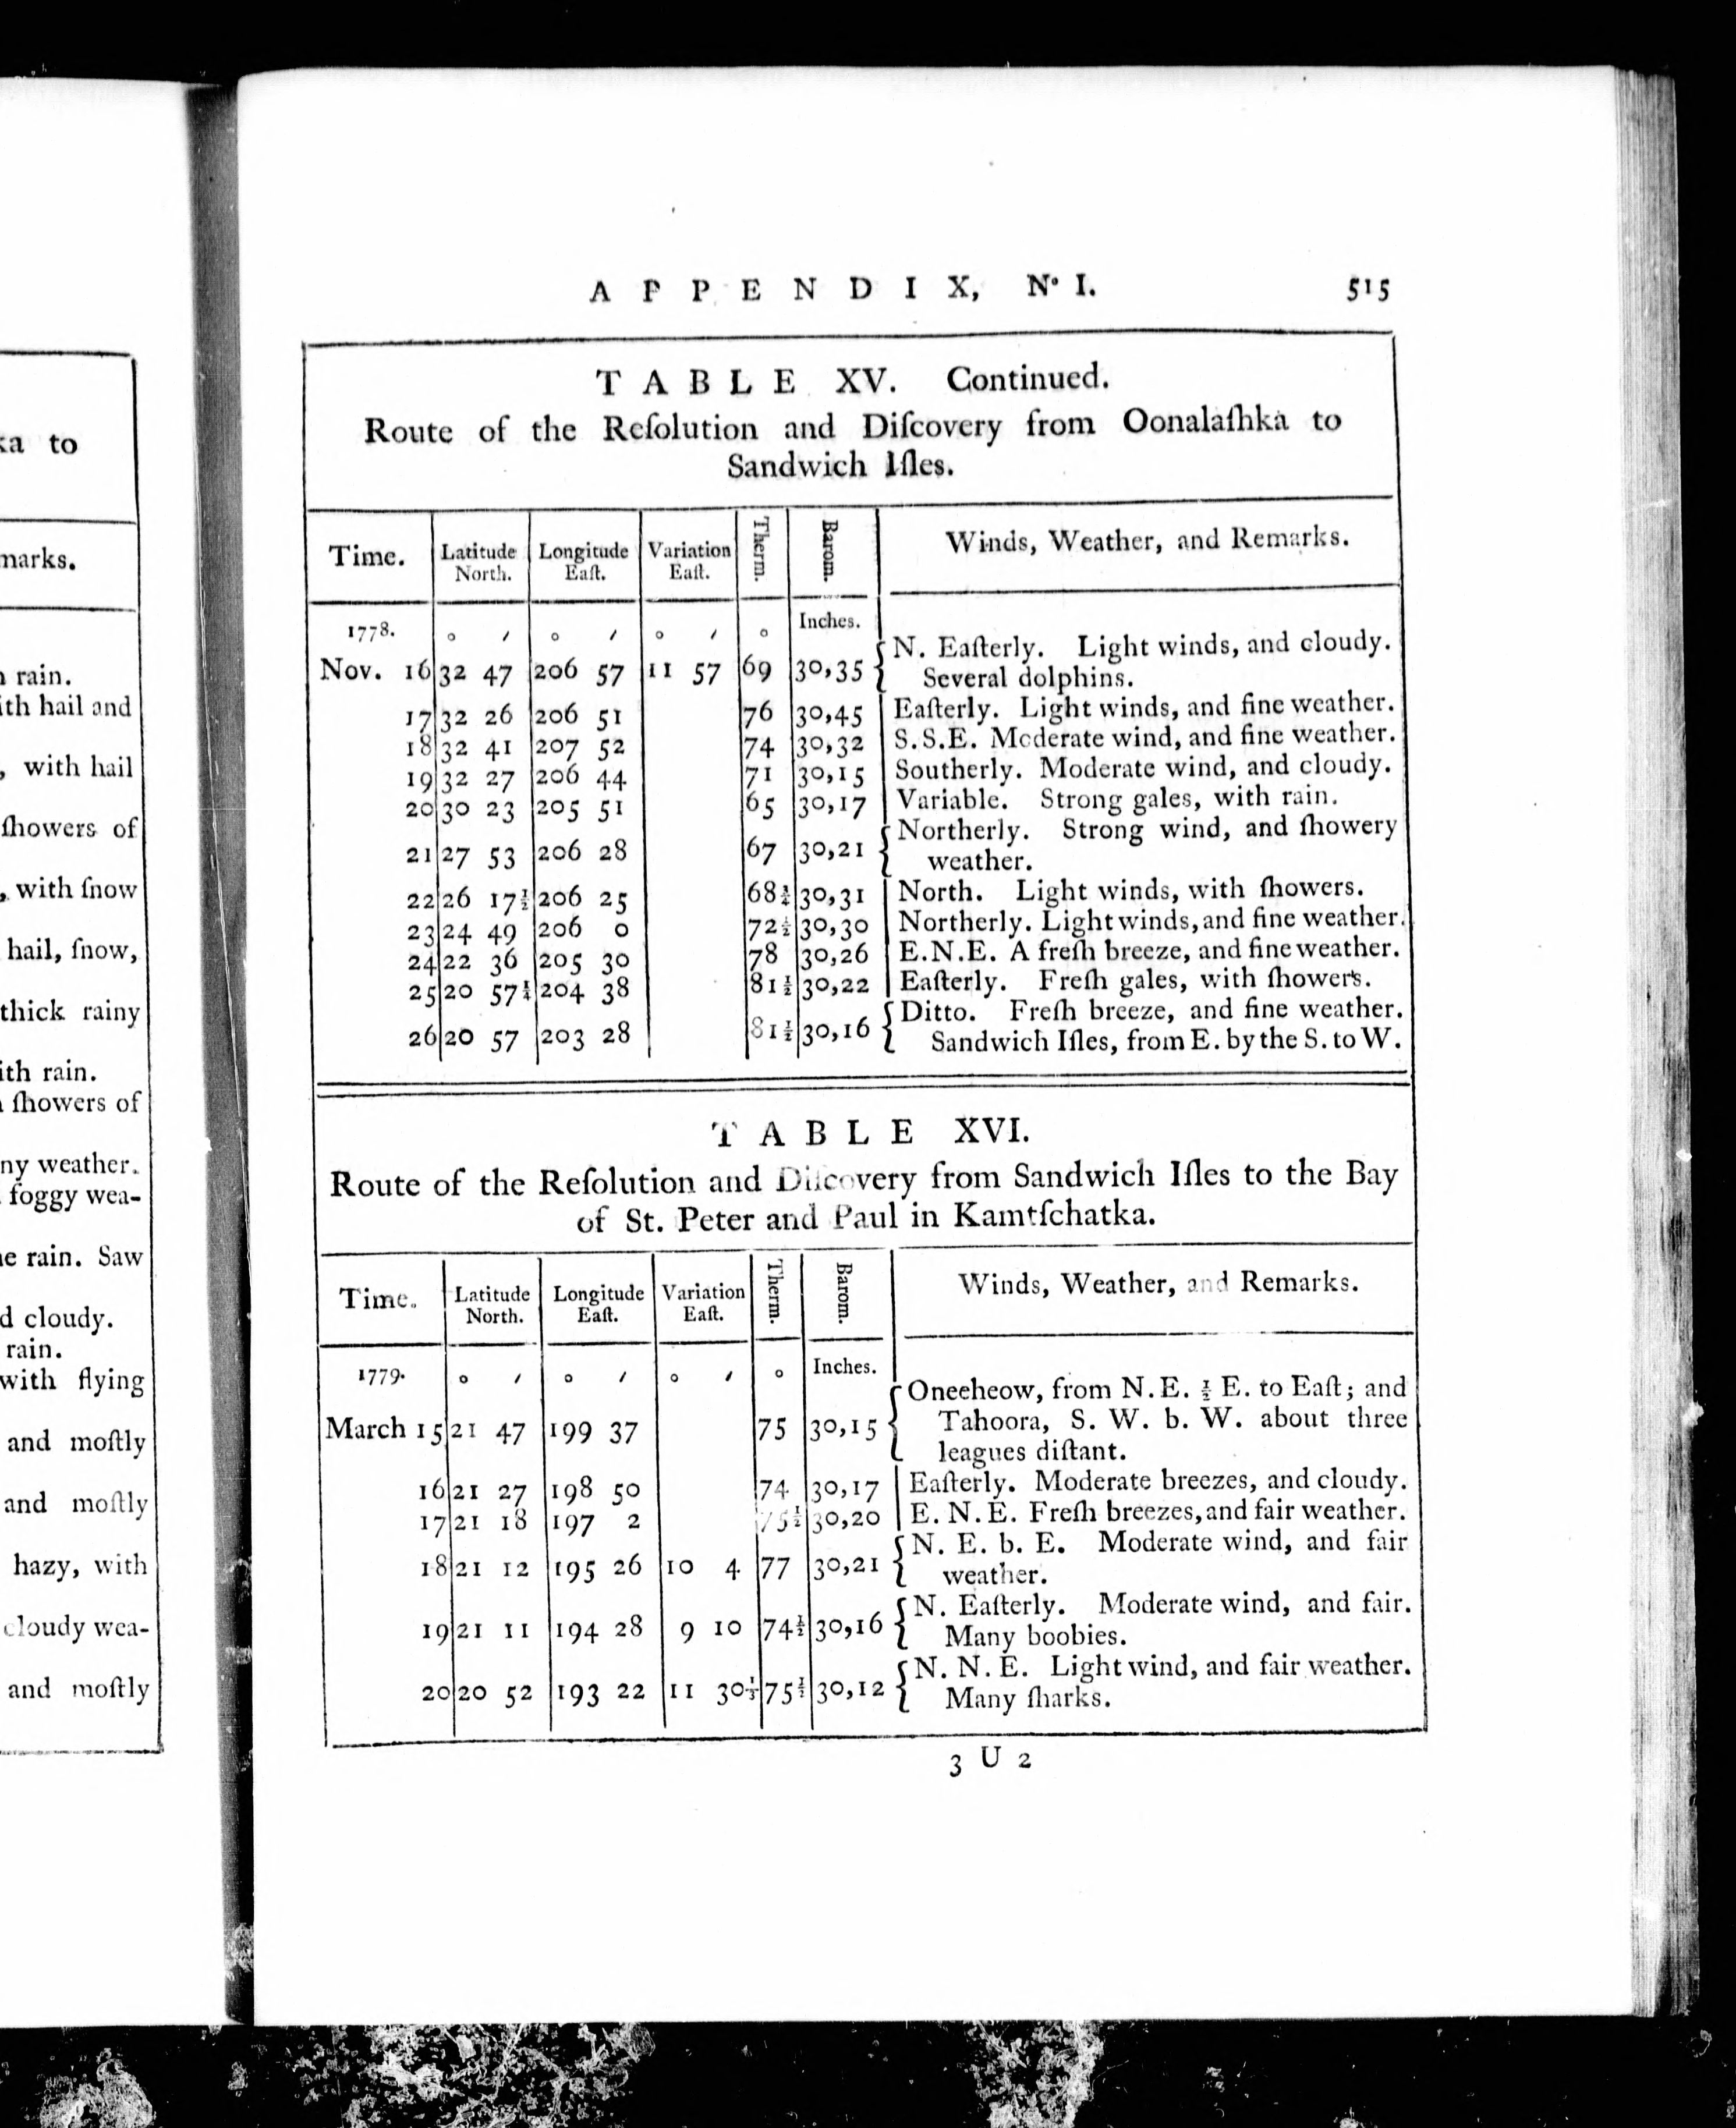 ka to
marks.
rain.
ith hail and
, with hail
ſhowers of
, with ſnow
hail, ſnow,
thick rainy
ith rain.
ſhowers of
ny weather.
foggy wea-
e rain. Saw
d cloudy.
rain.
with flying
and moſtly
and moſtly
hazy, with
cloudy wea-
and moſtly
APPENDIX, No I. 515
TABLE XV. Continued.
Route of the Reſolution and Diſcovery from Oonalaſhka to
Sandwich Iſles.
Time. Latitude North. Longitude Eaſt. Variation Eaſt. Therm. Barom. Winds, Weather, and Remarks.
1778. ° ′ ° ′ ° ′ ° Inches.
Nov. 16 32 47 206 57 11 57 69 30,35 N. Eaſterly. Light winds, and cloudy.
Several dolphins.
17 32 26 206 51 76 30,45 Eaſterly. Light winds, and fine weather.
18 32 41 207 52 74 30,32 S.S.E. Moderate wind, and fine weather.
19 32 27 206 44 71 30,15 Southerly. Moderate wind, and cloudy.
20 30 23 205 51 65 30,17 Variable. Strong gales, with rain.
21 27 53 206 28 67 30,21 Northerly. Strong wind, and ſhowery
weather.
22 26 17½ 206 25 68¾ 30,31 North. Light winds, with ſhowers.
23 24 49 206 0 72½ 30,30 Northerly. Light winds, and fine weather.
24 22 36 205 30 78 30,26 E.N.E. A freſh breeze, and fine weather.
25 20 57¼ 204 38 81½ 30,22 Eaſterly. Freſh gales, with ſhowers.
26 20 57 203 28 81½ 30,16 Ditto. Freſh breeze, and fine weather.
Sandwich Iſles, from E. by the S. to W.
TABLE XVI.
Route of the Reſolution and Diſcovery from Sandwich Iſles to the Bay
of St. Peter and Paul in Kamtſchatka.
Time. Latitude North. Longitude Eaſt. Variation Eaſt. Therm. Barom. Winds, Weather, and Remarks.
1779. ° ′ ° ′ ° ′ ° Inches.
March 15 21 47 199 37 75 30,15 Oneeheow, from N.E. ½ E. to Eaſt; and
Tahoora, S. W. b. W. about three
leagues diſtant.
16 21 27 198 50 74 30,17 Eaſterly. Moderate breezes, and cloudy.
17 21 18 197 2 75½ 30,20 E. N. E. Freſh breezes, and fair weather.
18 21 12 195 26 10 4 77 30,21 N. E. b. E. Moderate wind, and fair
weather.
19 21 11 194 28 9 10 74½ 30,16 N. Eaſterly. Moderate wind, and fair.
Many boobies.
20 20 52 193 22 11 30⅓ 75½ 30,12 N. N. E. Light wind, and fair weather.
Many ſharks.
3 U 2